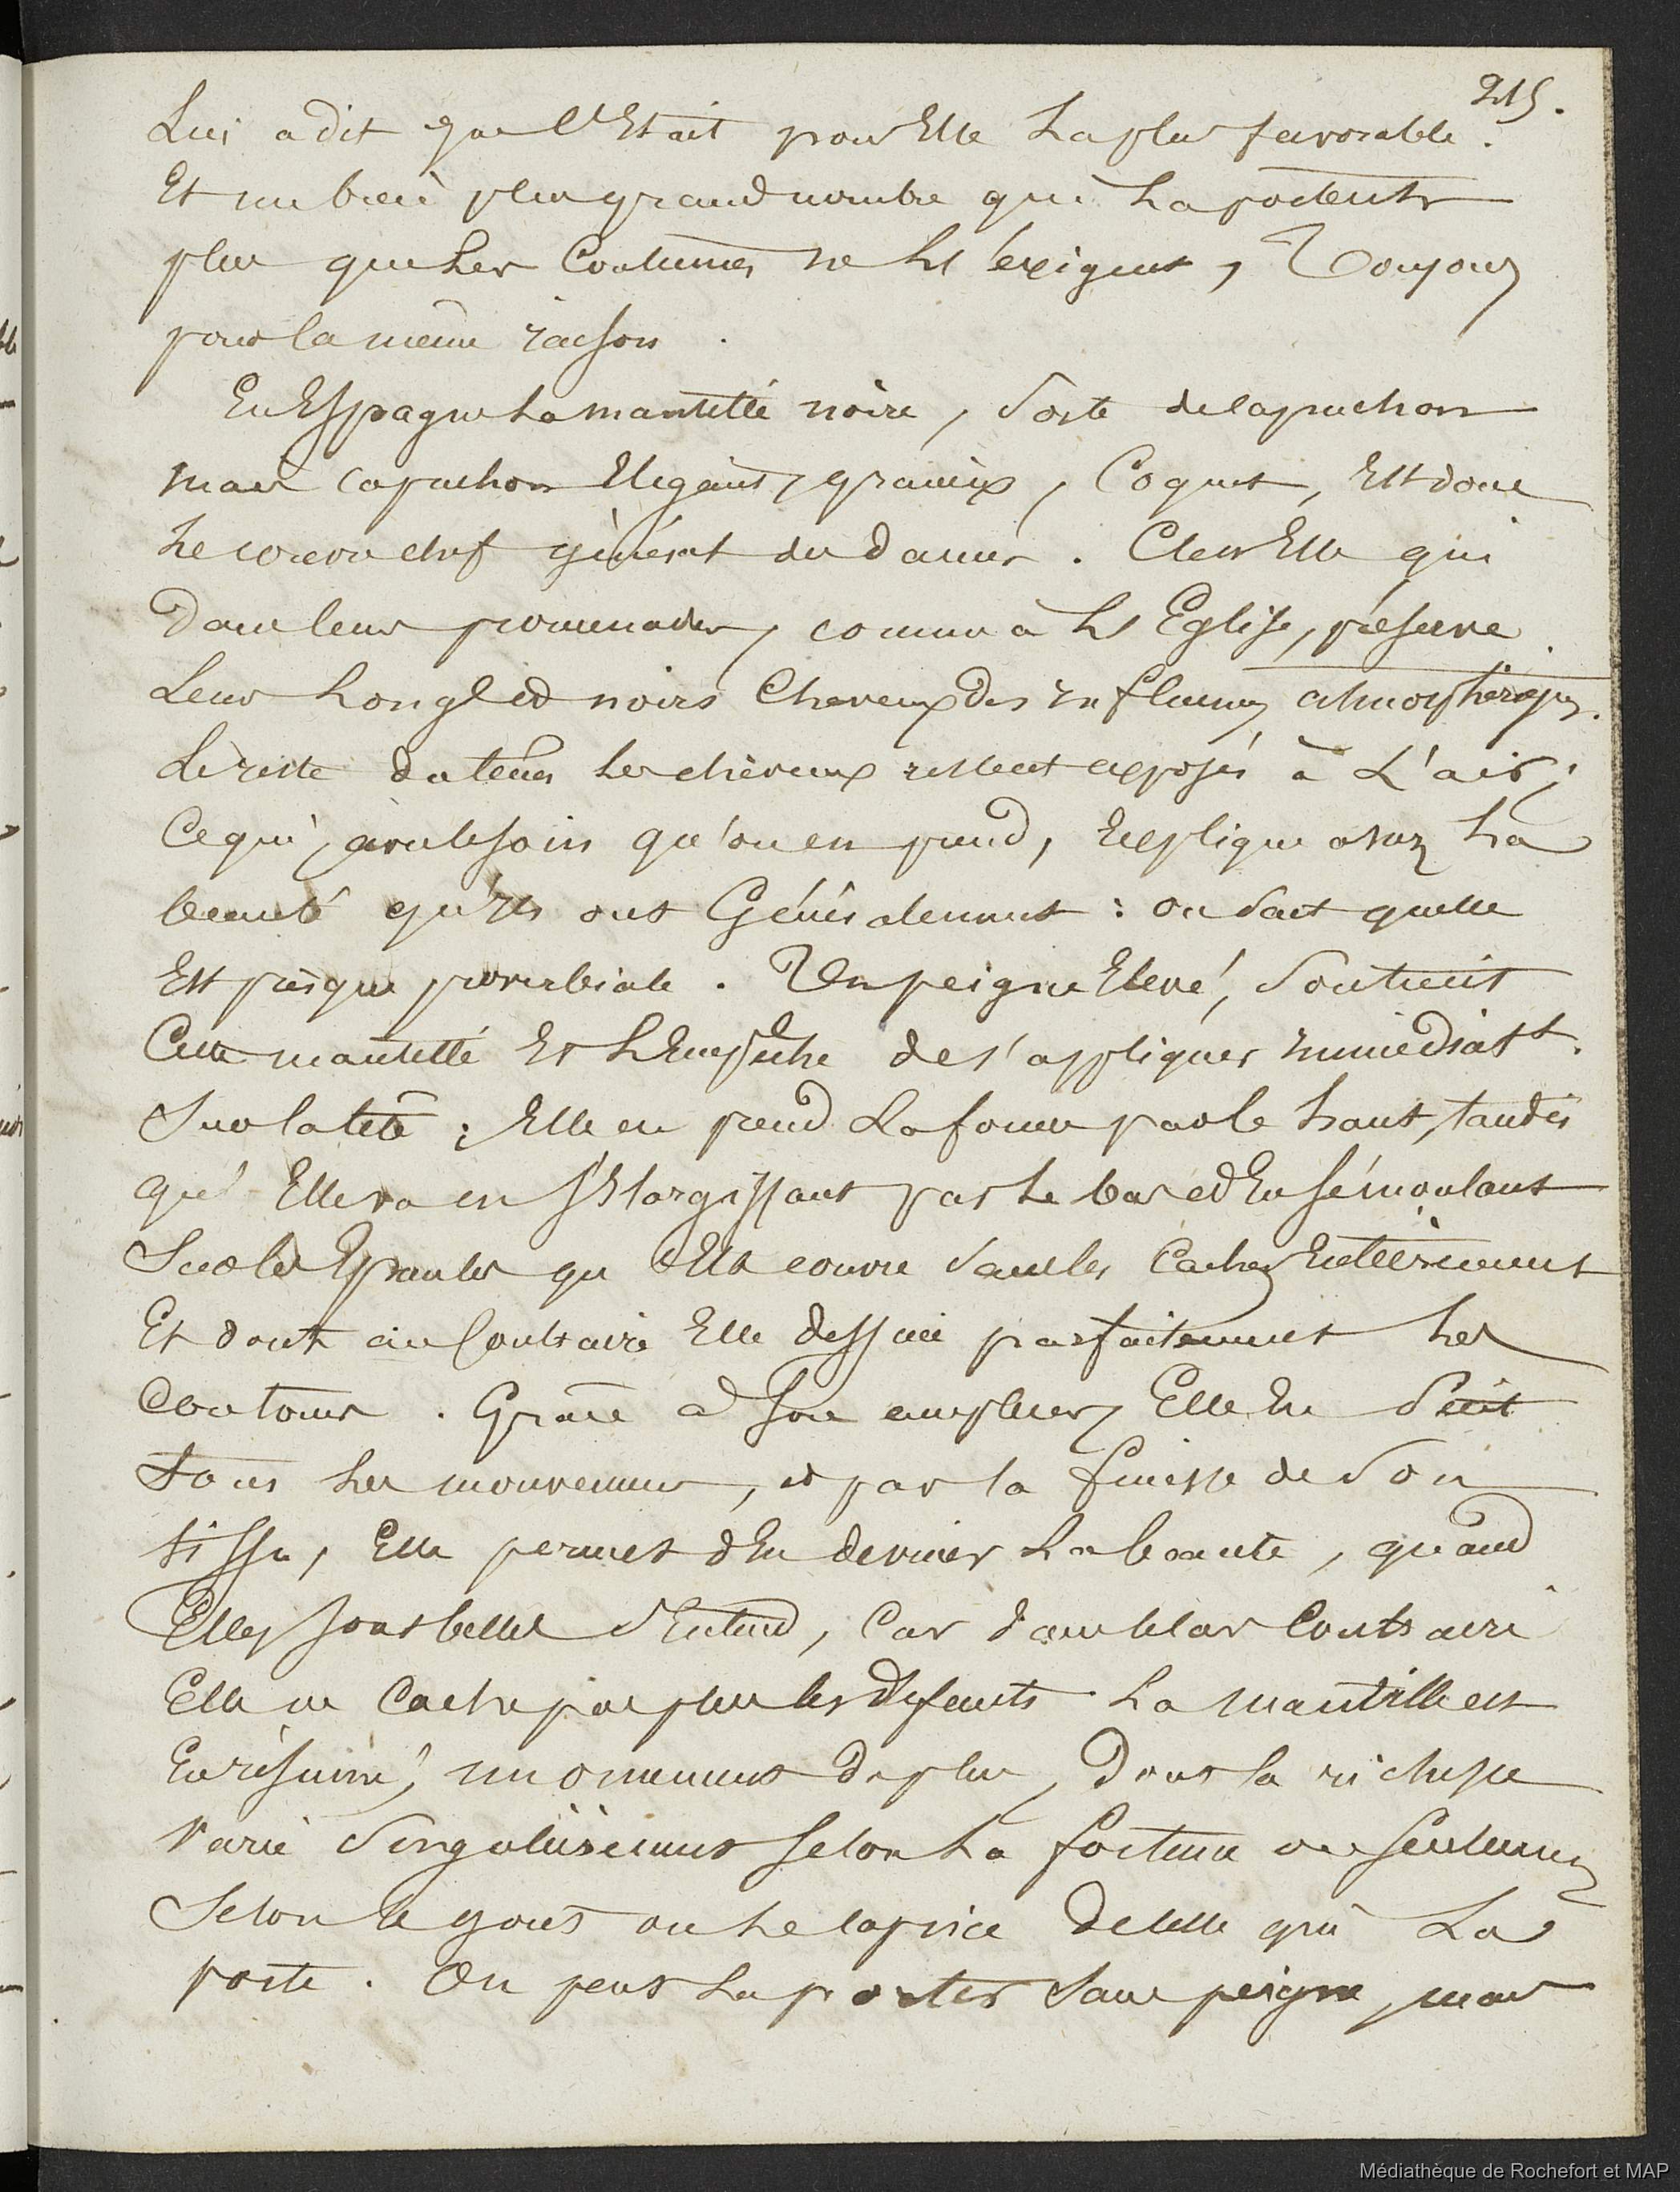 215.
Lui a dit que c'Etait pour Elle La plus favorable.
Et un bien plus grand nombre qui La portent
plus que Les Coutumes ne L'exigent, Toujours
pour la même raison.
En Espagne La mantille noire, Sorte de capuchon
mais capuchon Elegant, gracieux, Coquet, Est donc
Le couvre chef général des dames. C'est Elle qui
Dans leurs promenades, comme à L'Eglise, préserve
Leurs Longs et noirs Cheveux Des influences atmosphériques.
Le reste du tems Les cheveux restent exposés à L'air;
Ce qui, avec le soin qu'on en prend, Explique assez La
beauté qu'ils ont Généralement : on sait quelle
Est presque proverbiale. Un peigne Elevé, Soutient
Cette mantille Et L'Empêche de s'appliquer immédiatt.
Sur la tête; Elle en prend La forme par le haut, tandis
qu'Elle va en s'Elargissant par Le bas et En se moulant
Sur les Epaules qu'Elle couvre sans les Cacher Entièrement
Et dont au Contraire Elle dessine parfaitement Les
Contours. Grace à son ampleur, Elle En Suit
tous Les mouvemens, et par la finesse de Son
tissu, Elle permet d'En deviner La beauté, quand
Elles sont belles s'Entend, Car dans le cas Contraire
Elle ne Cache pas plus les défauts. La mantille est
En résumé, un ornement de plus, Dont la richesse
Varie Singulièrement selon La fortune ou seulement
Selon le gout ou Le caprice de celle qui La
porte. On peut La porter Sans peigne, mais
Médiathèque de Rochefort et MAP